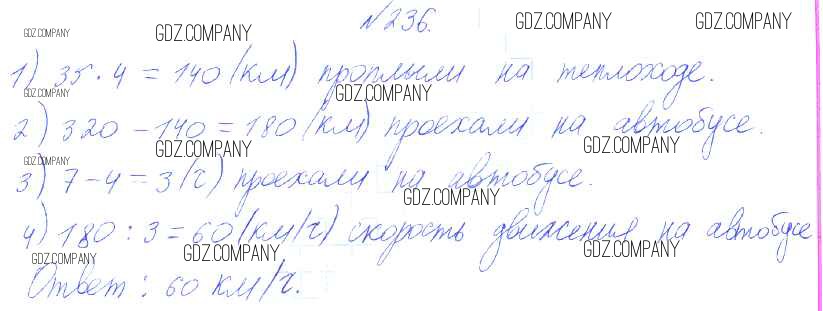 №236.
1) 35 · 4 = 140 (км) проплыли на теплоходе.
2) 320 - 140 = 180 (км) проехали на автобусе.
3) 7 - 4 = 3 (ч) проехали на автобусе.
4) 180 : 3 = 60 (км/ч) скорость движения на автобусе.
Ответ: 60 км/ч.
GDZ.COMPANY
GDZ.COMPANY
GDZ.COMPANY
GDZ.COMPANY
GDZ.COMPANY
GDZ.COMPANY
GDZ.COMPANY
GDZ.COMPANY
GDZ.COMPANY
GDZ.COMPANY
GDZ.COMPANY
GDZ.COMPANY
GDZ.COMPANY
GDZ.COMPANY